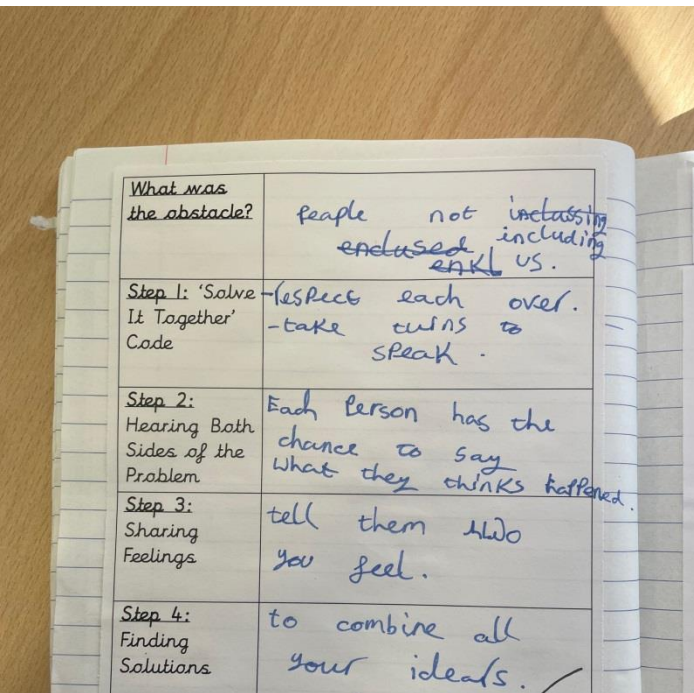 What was
the obstacle?
People not inclussing
enclused including
enkl us.
Step 1: 'Solve
It Together'
Code
-respect each over.
-take turns to
speak.
Step 2:
Hearing Both
Sides of the
Problem
Each Person has the
chance to say
what they thinks happened.
Step 3:
Sharing
Feelings
tell them
you feel.
Step 4:
Finding
Solutions
to combine all
your ideals.